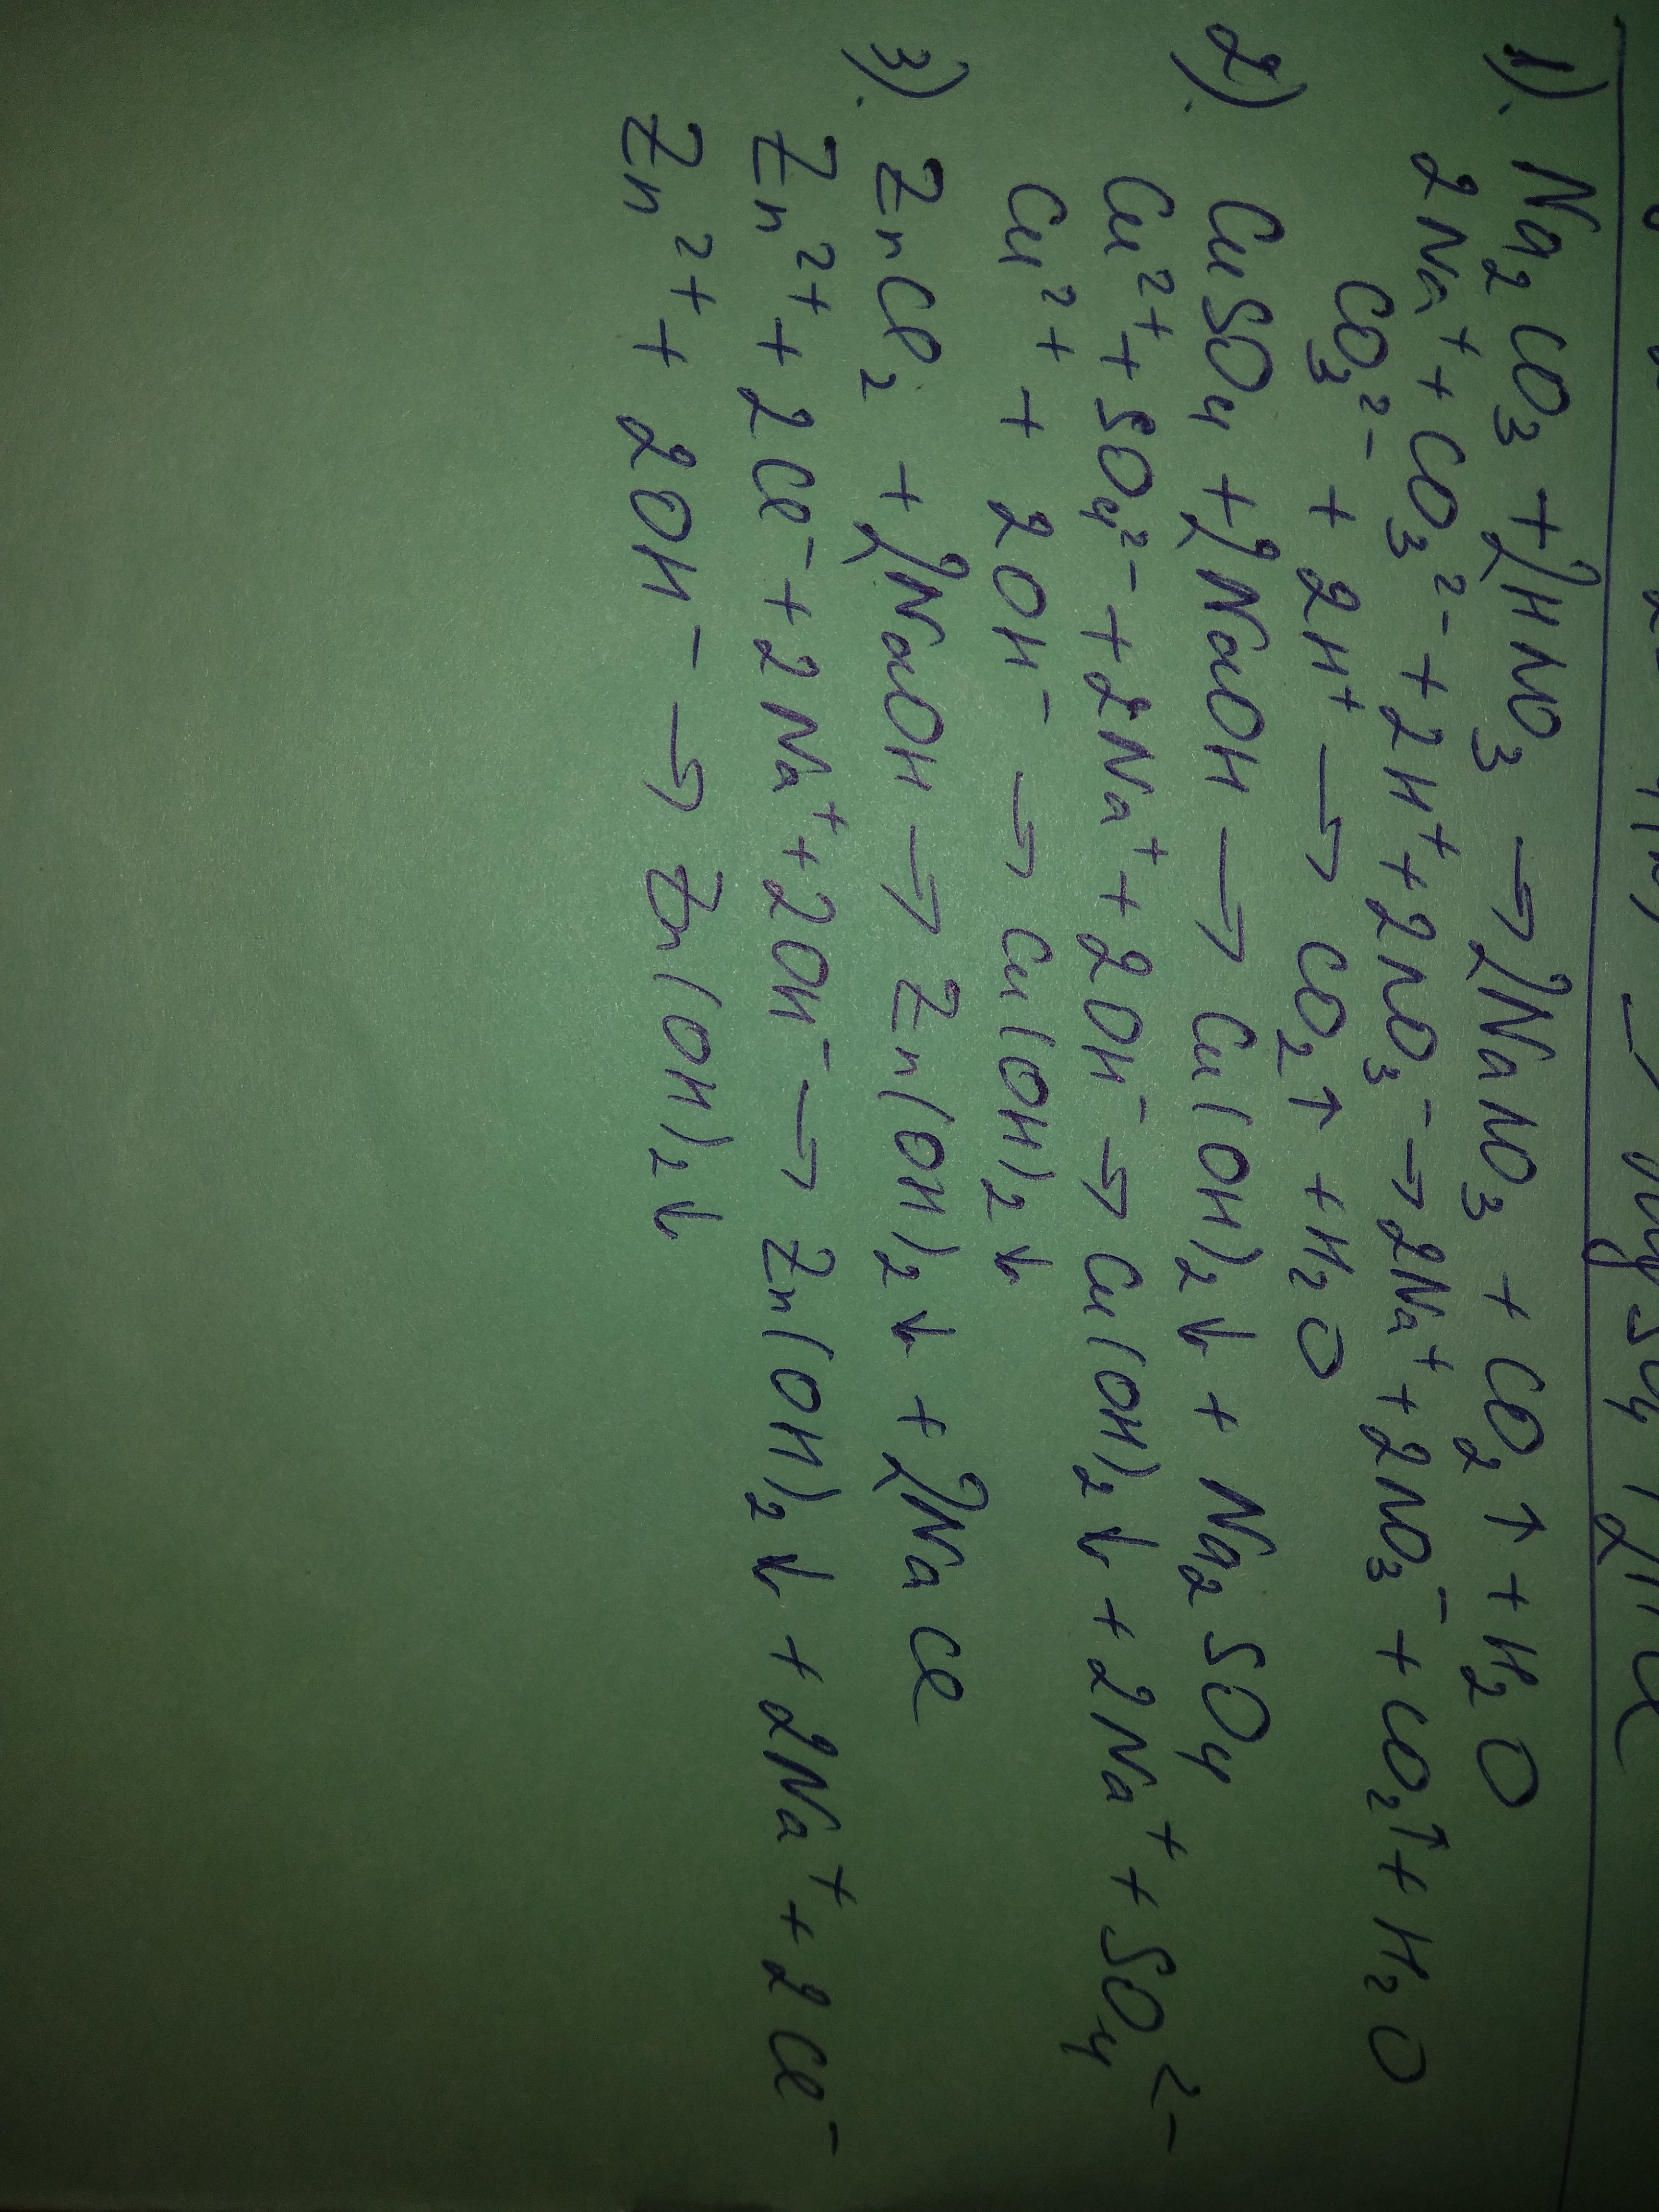 1). Na₂CO₃ + 2HNO₃ → 2NaNO₃ + CO₂↑ + H₂O
2Na⁺ + CO₃²⁻ + 2H⁺ + 2NO₃⁻ → 2Na⁺ + 2NO₃⁻ + CO₂↑ + H₂O
CO₃²⁻ + 2H⁺ → CO₂↑ + H₂O
2). CuSO₄ + 2NaOH → Cu(OH)₂↓ + Na₂SO₄
Cu²⁺ + SO₄²⁻ + 2Na⁺ + 2OH⁻ → Cu(OH)₂↓ + 2Na⁺ + SO₄²⁻
Cu²⁺ + 2OH⁻ → Cu(OH)₂↓
3). ZnCl₂ + 2NaOH → Zn(OH)₂↓ + 2NaCl
Zn²⁺ + 2Cl⁻ + 2Na⁺ + 2OH⁻ → Zn(OH)₂↓ + 2Na⁺ + 2Cl⁻
Zn²⁺ + 2OH⁻ → Zn(OH)₂↓